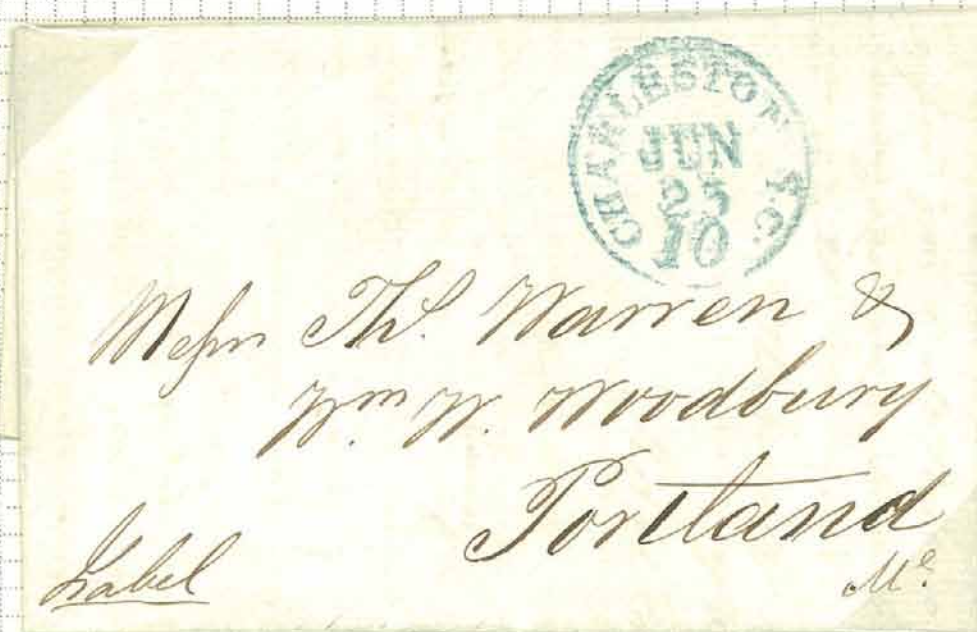 CHARLESTON S.C.
JUN
25
10
Messrs Ths. Warren &
Wm W. Woodbury
Portland
Me
Isabel